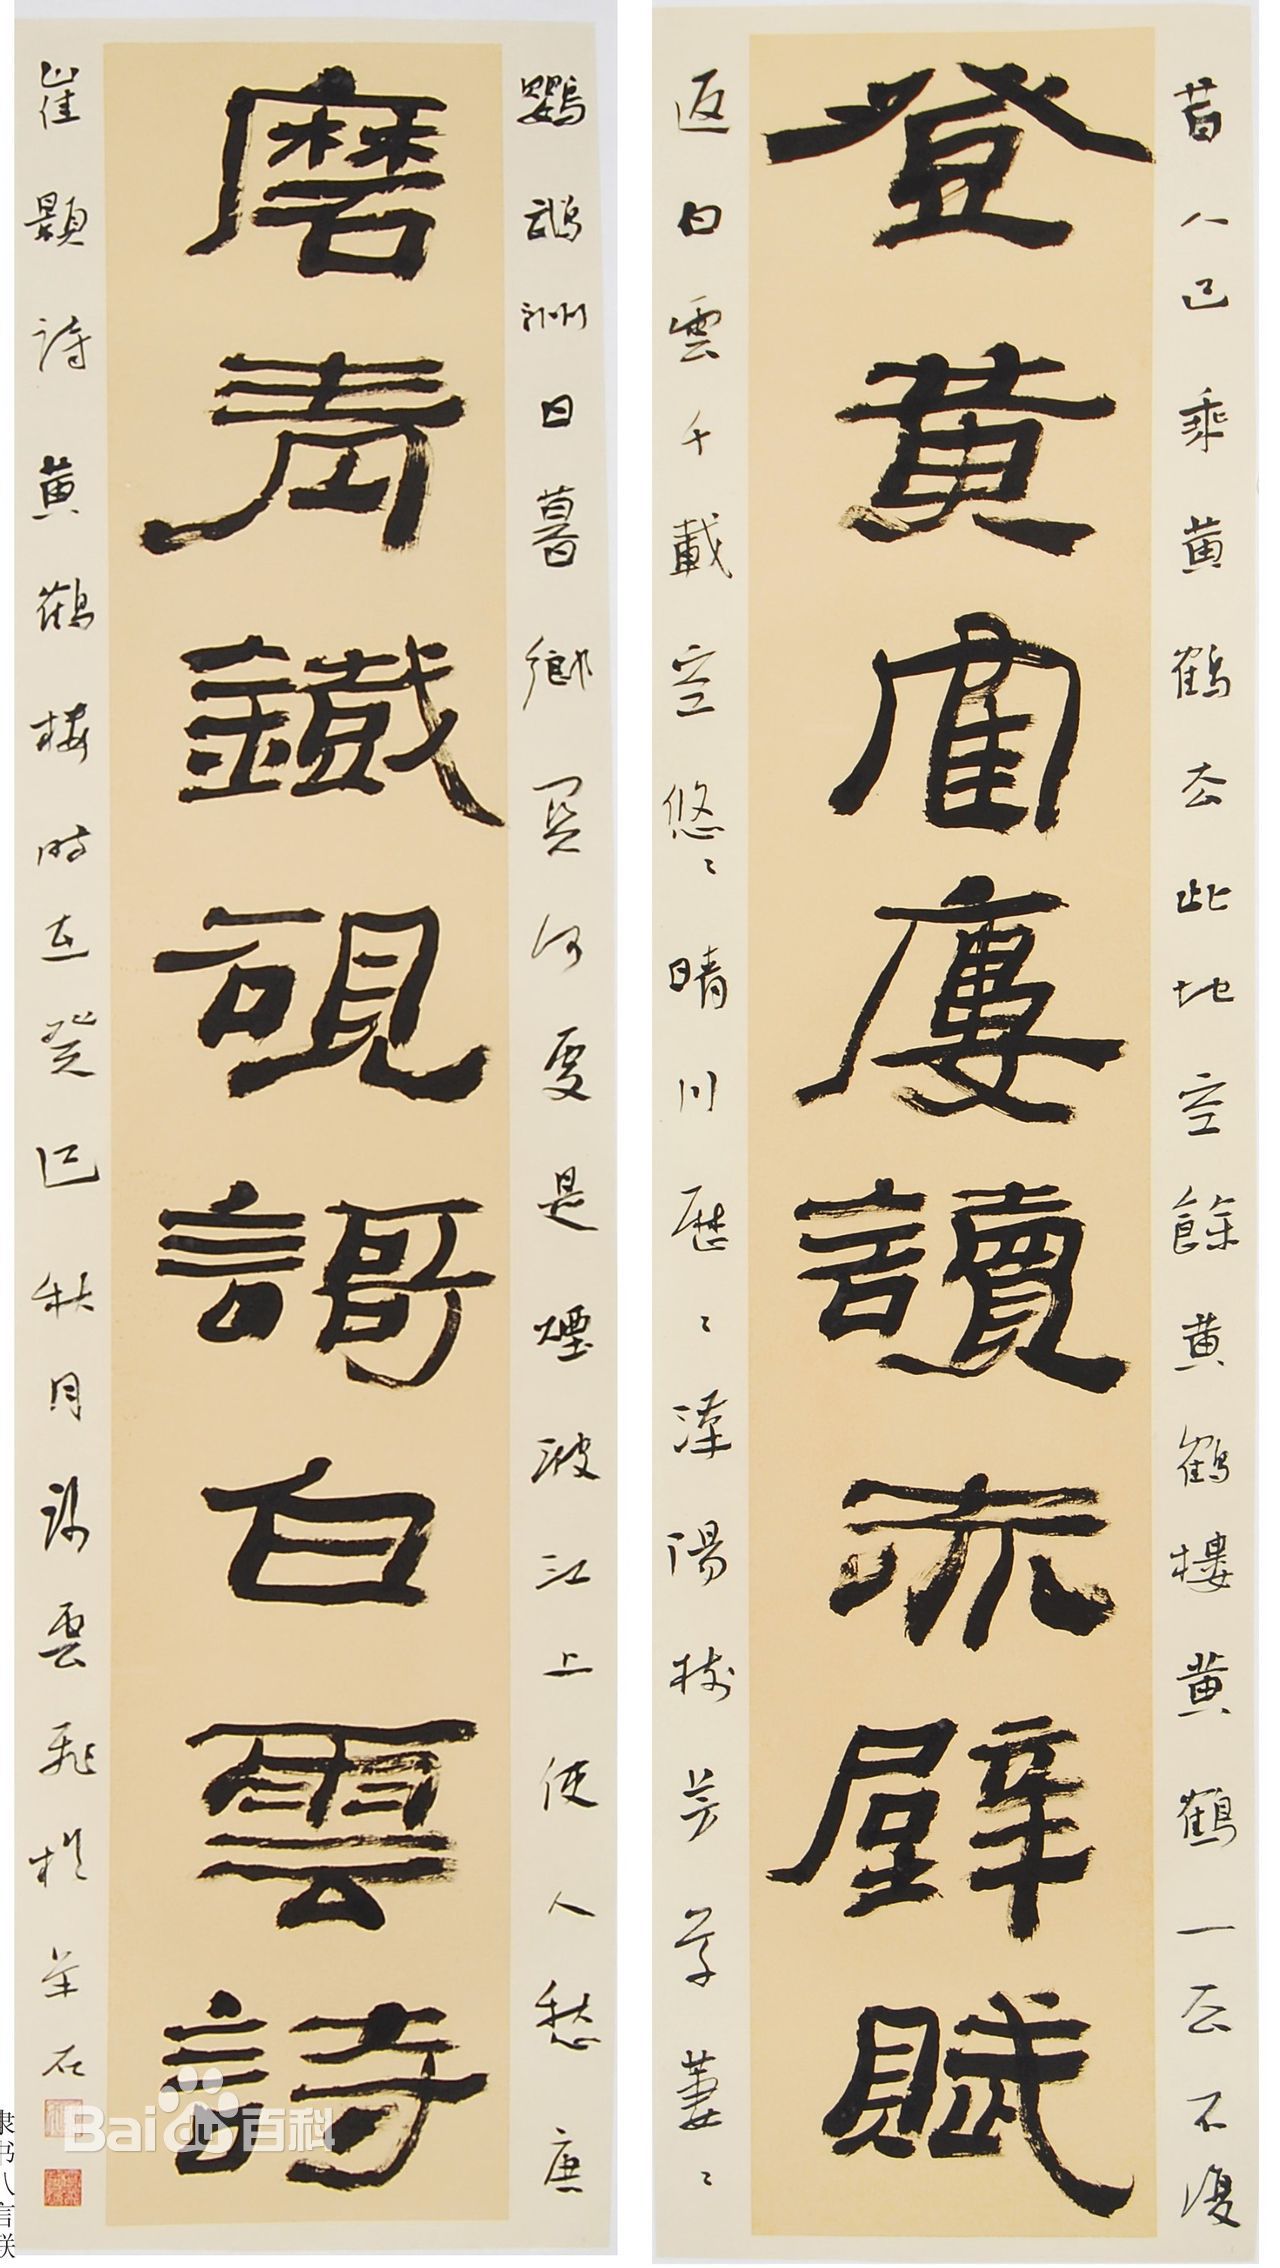 昔人已乘黄鶴去此地空餘黄鶴樓黄鶴一去不復
登黄隺廔讀赤壁賦
返白雲千載空悠〻晴川歷〻漢陽樹芳草萋〻
鸚鵡洲日暮鄉關何處是煙波江上使人愁唐
磨青鐵硯謌白雲詩
崔顥詩黄鶴楼時在癸巳秋月雲飛於羊石
隶书八言联
Baidu百科